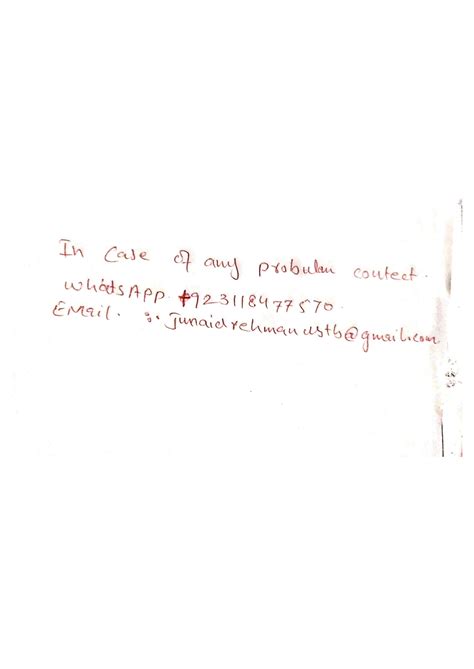 In case of any probulem contect.
WhatsApp. +923118477570.
EMail. :. Junaidrehmanustb@gmail.com